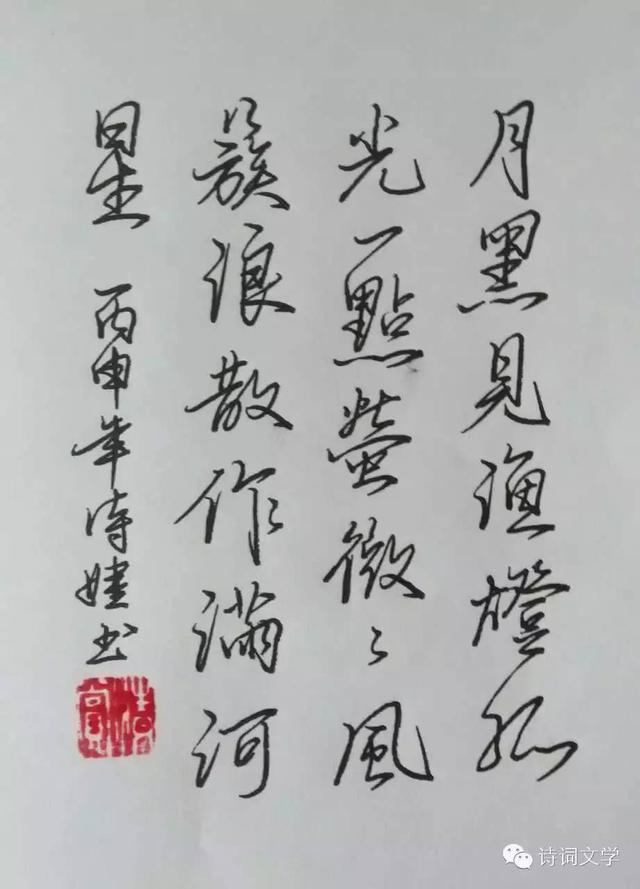 月黑見漁燈孤
光一點螢微〻風
簇浪散作滿河
星 丙申年诗婕书
诗词文学